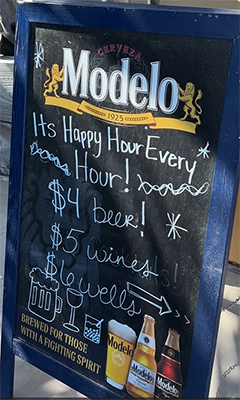 CERVEZA
Modelo
1925
Its Happy Hour Every
Hour!
$4 beer!
$5 wines!
$6 wells
BREWED FOR THOSE
WITH A FIGHTING SPIRIT
Modelo
Modelo
Modelo